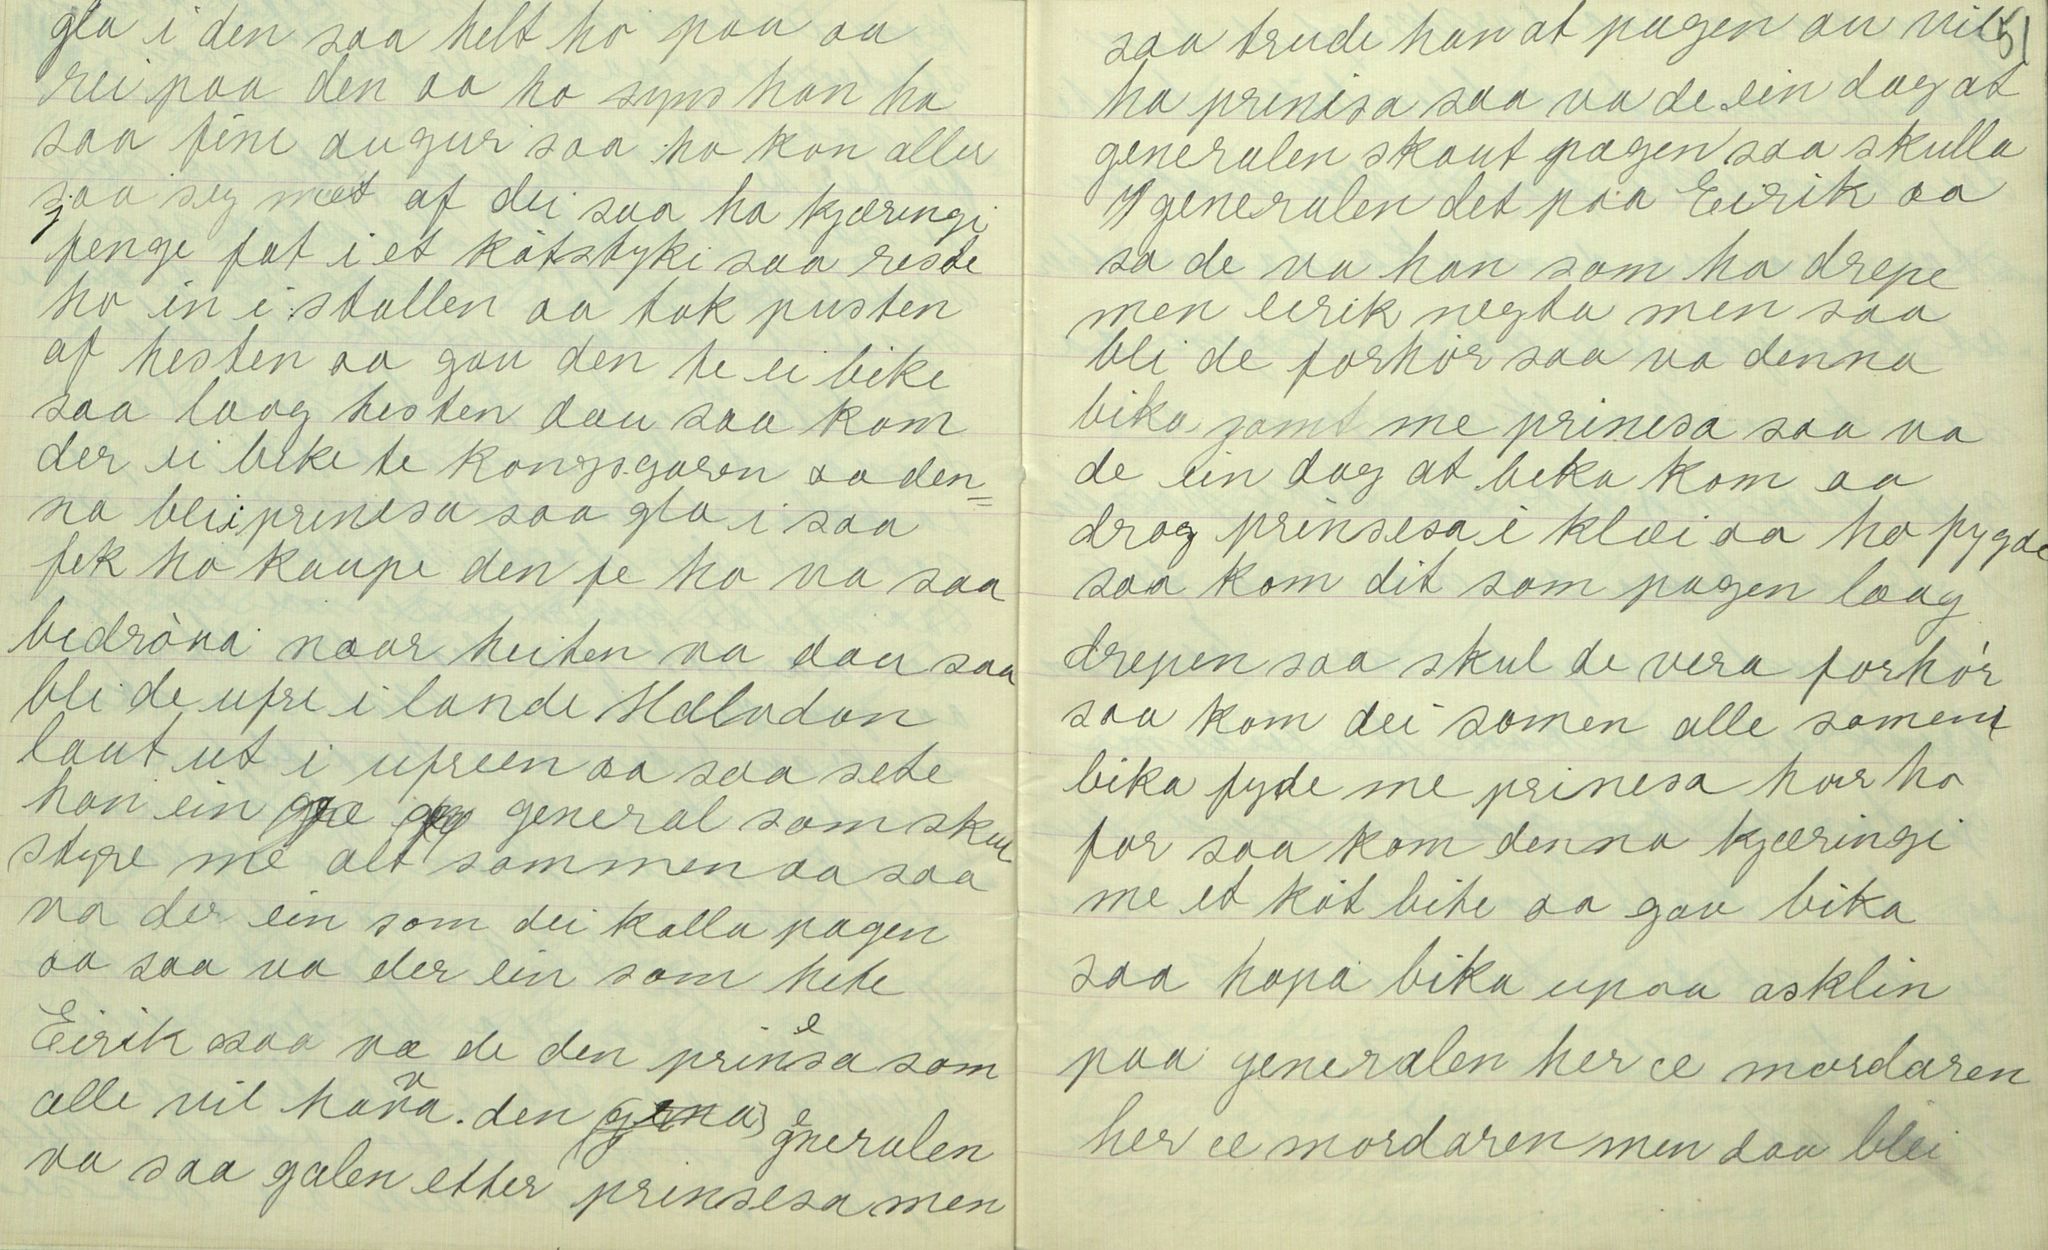 gla i den saa helt ho paa aa
rei paa den aa ho syns han ha
saa fine augur saa ho kan aller
sjaa seg mæt af dei saa ha kjæringi
fenge fat i et kötstyki saa reste
ho in i stallen aa tok pusten
af hesten aa gav den te ei bike
saa laag hesten dau saa kom
der ei bike te kongsgaren aa den=
na blei prinesa saa gla i saa
fek ho kaupe den fe ho va saa
bedröva naar heiten va dau saa
bli de ufre i lande Halvdan
laut ut i ufreen aa saa sete
han ein general som skul
styre me alt sammen aa saa
va der ein som dei kalla pagen
aa saa va der ein som hete
Eirik saa va de den prinsesa som
alle vil hava. den generalen
va saa galen etter prinsesa men
51
saa trude han at pagen au vil
ha prinisa saa va de ein dag at
generalen skaut pagen saa skulla
generalen det paa Eirik aa
sa de va han som ha drepe
men eirik negta men saa
bli de forhör saa va denna
bika jamt me prinesa saa va
de ein dag at beka kom aa
drog prinsesa i klæi aa ho fygde
saa kom dit som pagen laag
drepen saa skul de vera forhör
saa kom dei somen alle somen
bika fyde me prinesa hær ho
for saa kom denna kjæringi
me et köt bite aa gav bika
saa hopa bika upaa asklin
paa generalen her æ mordaren
her æ mordaren men daa blei